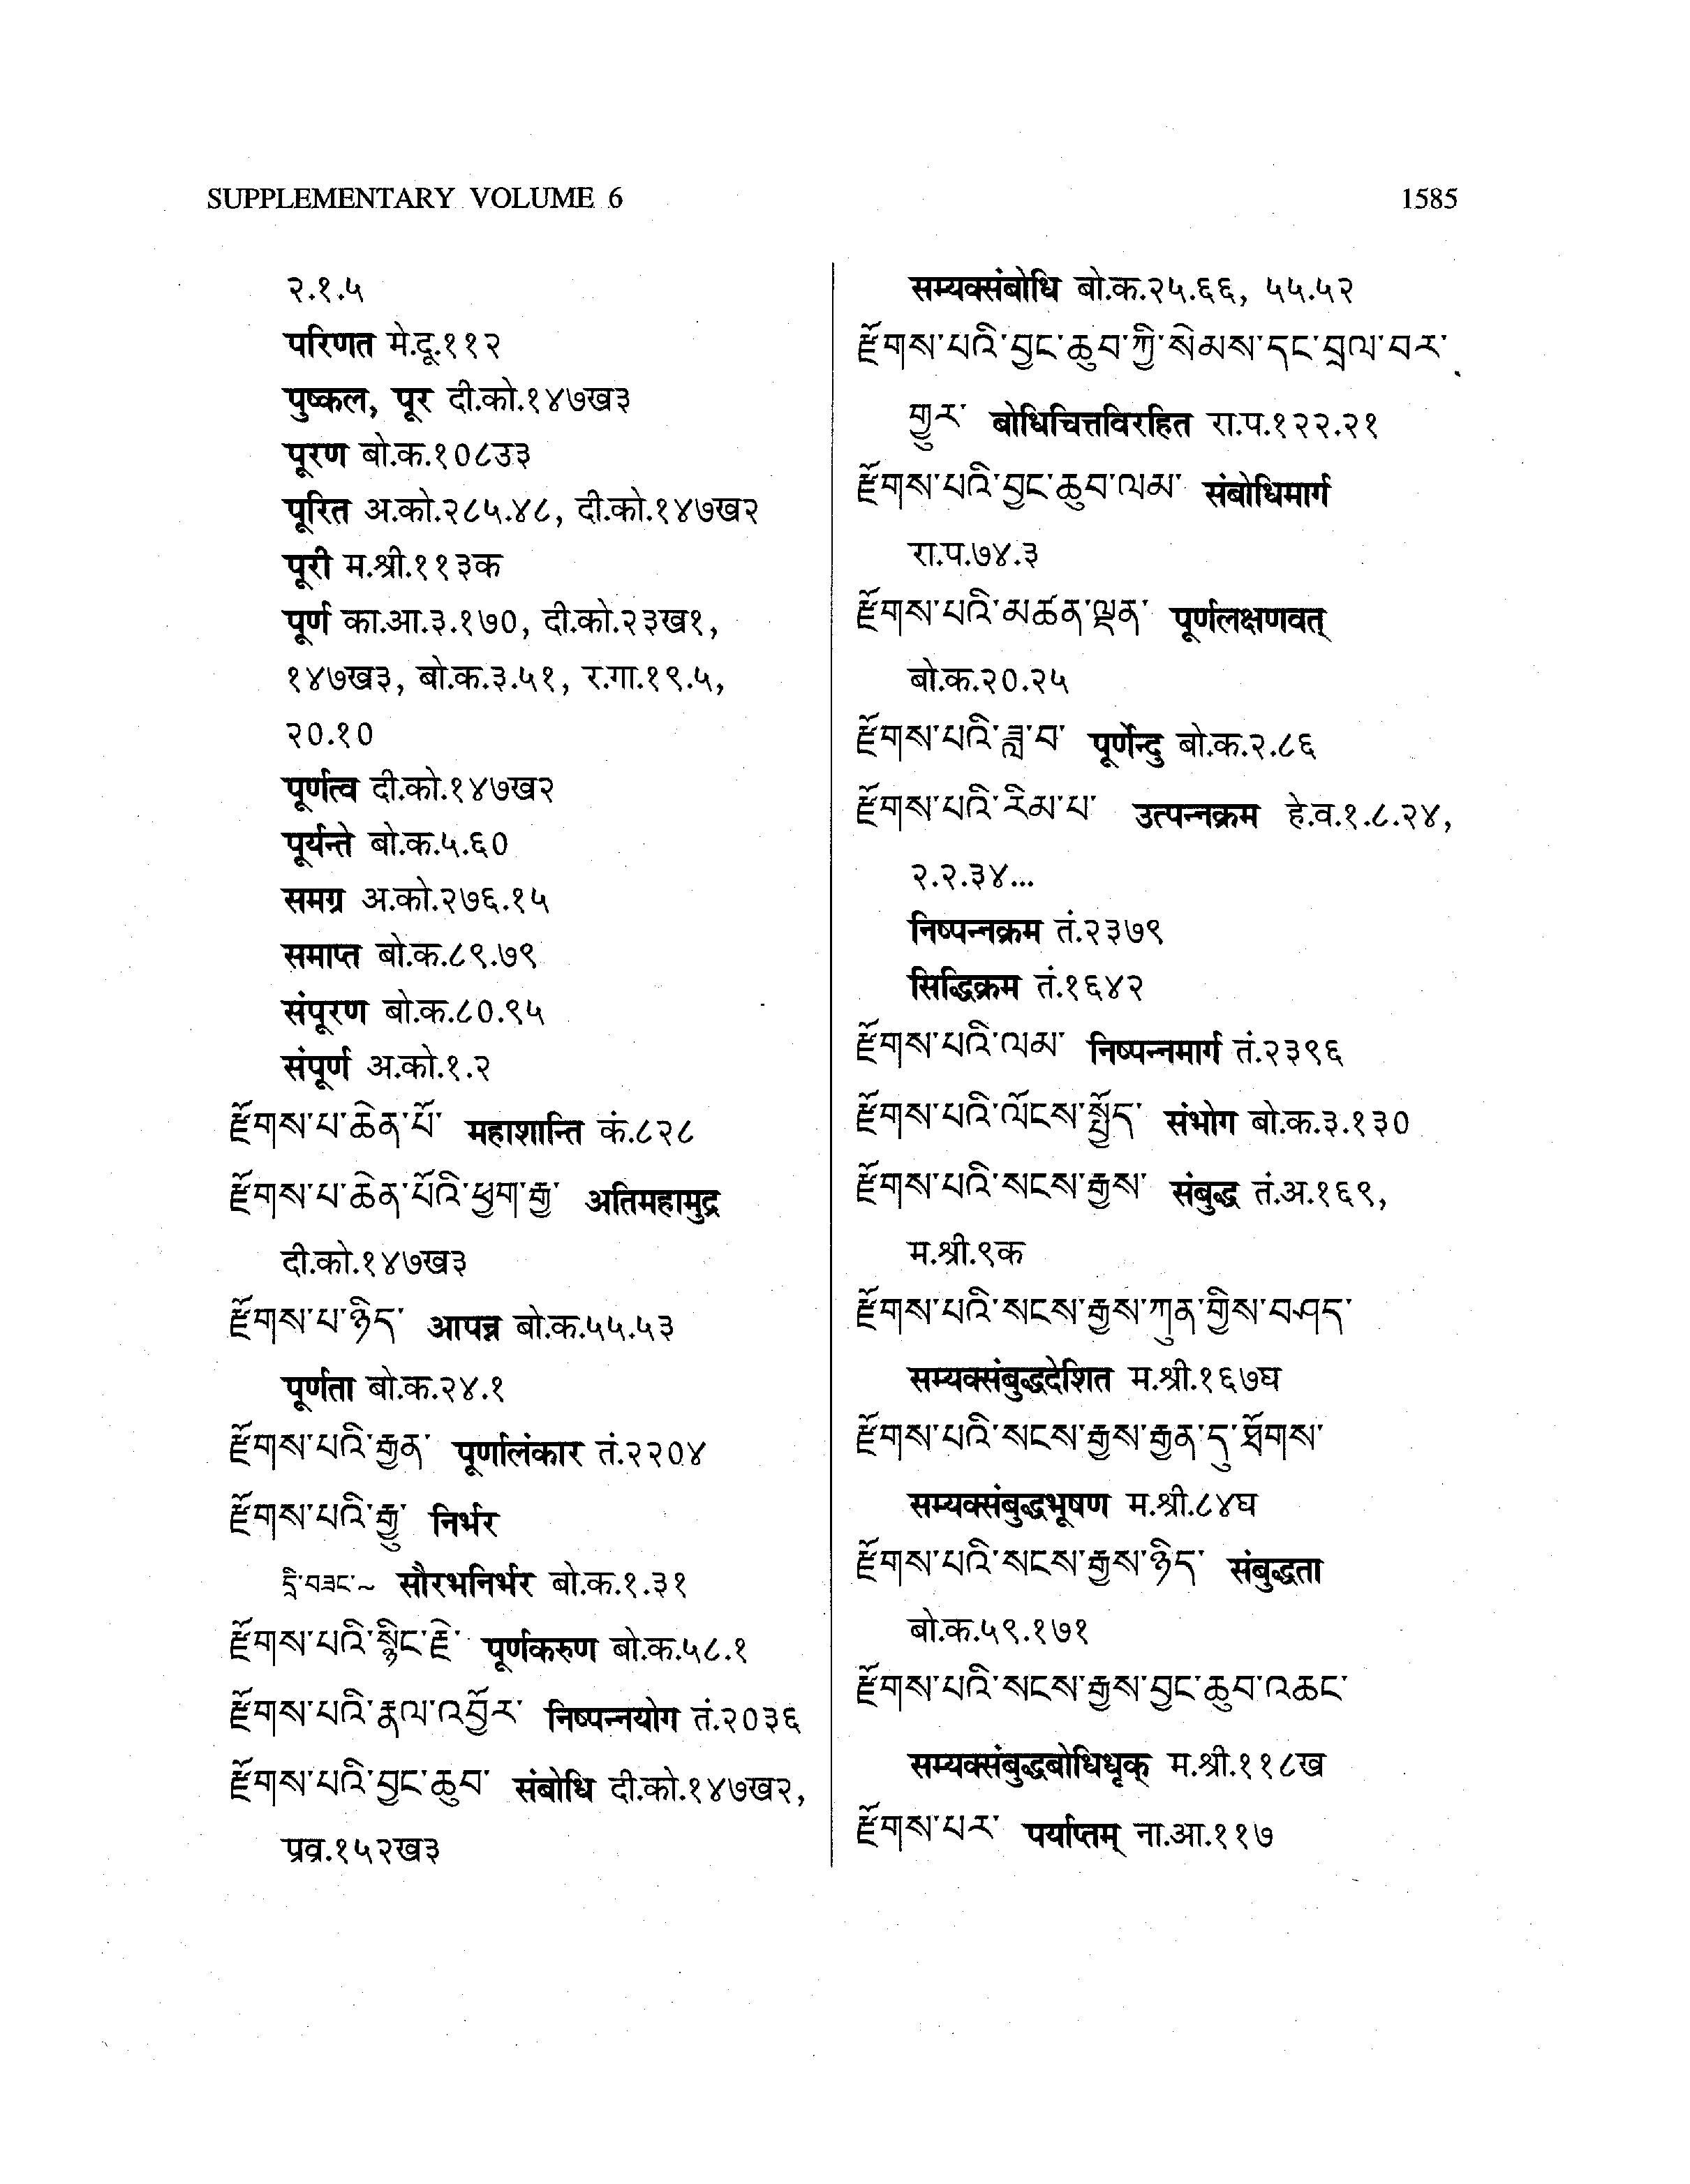 SUPPLEMENTARY VOLUME 6 1585
२.१.५
परिणत मे.दू.११२
पुष्कल, पूर दी.को.१४७ख३
पूरण बो.क.१०८उ३
पूरित अ.को.२८५.४८, दी.को.१४७ख२
पूरी म.श्री.११३क
पूर्ण का.आ.३.१७०, दी.को.२३ख१,
१४७ख३, बो.क.३.५१, र.गा.१९.५,
२०.१०
पूर्णत्व दी.को.१४७ख२
पूर्यन्ते बो.क.५.६०
समग्र अ.को.२७६.१५
समाप्त बो.क.८९.७९
संपूरण बो.क.८०.९५
संपूर्ण अ.को.१.२
རྫོགས་པ་ཆེན་པོ་ महाशान्ति कं.८२८
རྫོགས་པ་ཆེན་པོའི་ཕྱག་རྒྱ་ अतिमहामुद्र
दी.को.१४७ख३
རྫོགས་པ་ཉིད་ आपन्न बो.क.५५.५३
पूर्णता बो.क.२४.१
རྫོགས་པའི་རྒྱན་ पूर्णालंकार तं.२२०४
རྫོགས་པའི་རྒྱུ་ निर्भर
དྲི་བཟང་~ सौरभनिर्भर बो.क.१.३१
རྫོགས་པའི་སྙིང་རྗེ་ पूर्णकरुण बो.क.५८.१
རྫོགས་པའི་རྣལ་འབྱོར་ निष्पन्नयोग तं.२०३६
རྫོགས་པའི་བྱང་ཆུབ་ संबोधि दी.को.१४७ख२,
प्रव्र.१५२ख३
सम्यक्संबोधि बो.क.२५.६६, ५५.५२
རྫོགས་པའི་བྱང་ཆུབ་ཀྱི་སེམས་དང་བྲལ་བར་
གྱུར་ बोधिचित्तविरहित रा.प.१२२.२१
རྫོགས་པའི་བྱང་ཆུབ་ལམ་ संबोधिमार्ग
रा.प.७४.३
རྫོགས་པའི་མཚན་ལྡན་ पूर्णलक्षणवत्
बो.क.२०.२५
རྫོགས་པའི་ཟླ་བ་ पूर्णेन्दु बो.क.२.८६
རྫོགས་པའི་རིམ་པ་ उत्पन्नक्रम हे.व.१.८.२४,
२.२.३४...
निष्पन्नक्रम तं.२३७९
सिद्धिक्रम तं.१६४२
རྫོགས་པའི་ལམ་ निष्पन्नमार्ग तं.२३९६
རྫོགས་པའི་ལོངས་སྤྱོད་ संभोग बो.क.३.१३०
རྫོགས་པའི་སངས་རྒྱས་ संबुद्ध तं.अ.१६९,
म.श्री.९क
རྫོགས་པའི་སངས་རྒྱས་ཀུན་གྱིས་བཤད་
सम्यक्संबुद्धदेशित म.श्री.१६७घ
རྫོགས་པའི་སངས་རྒྱས་རྒྱན་དུ་ཐོགས་
सम्यक्संबुद्धभूषण म.श्री.८४घ
རྫོགས་པའི་སངས་རྒྱས་ཉིད་ संबुद्धता
बो.क.५९.१७१
རྫོགས་པའི་སངས་རྒྱས་བྱང་ཆུབ་འཆང་
सम्यक्संबुद्धबोधिधृक् म.श्री.११८ख
རྫོགས་པར་ पर्याप्तम् ना.आ.११७